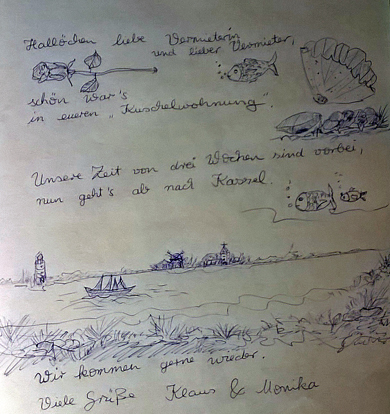 Hallöchen liebe Vermieterin
und lieber Vermieter,
schön war's
in eueren „Kuschelwohnung".
Unsere Zeit von drei Wochen sind vorbei,
nun geht's ab nach Kassel.
Wir kommen gerne wieder.
Viele Grüße Klaus & Monika